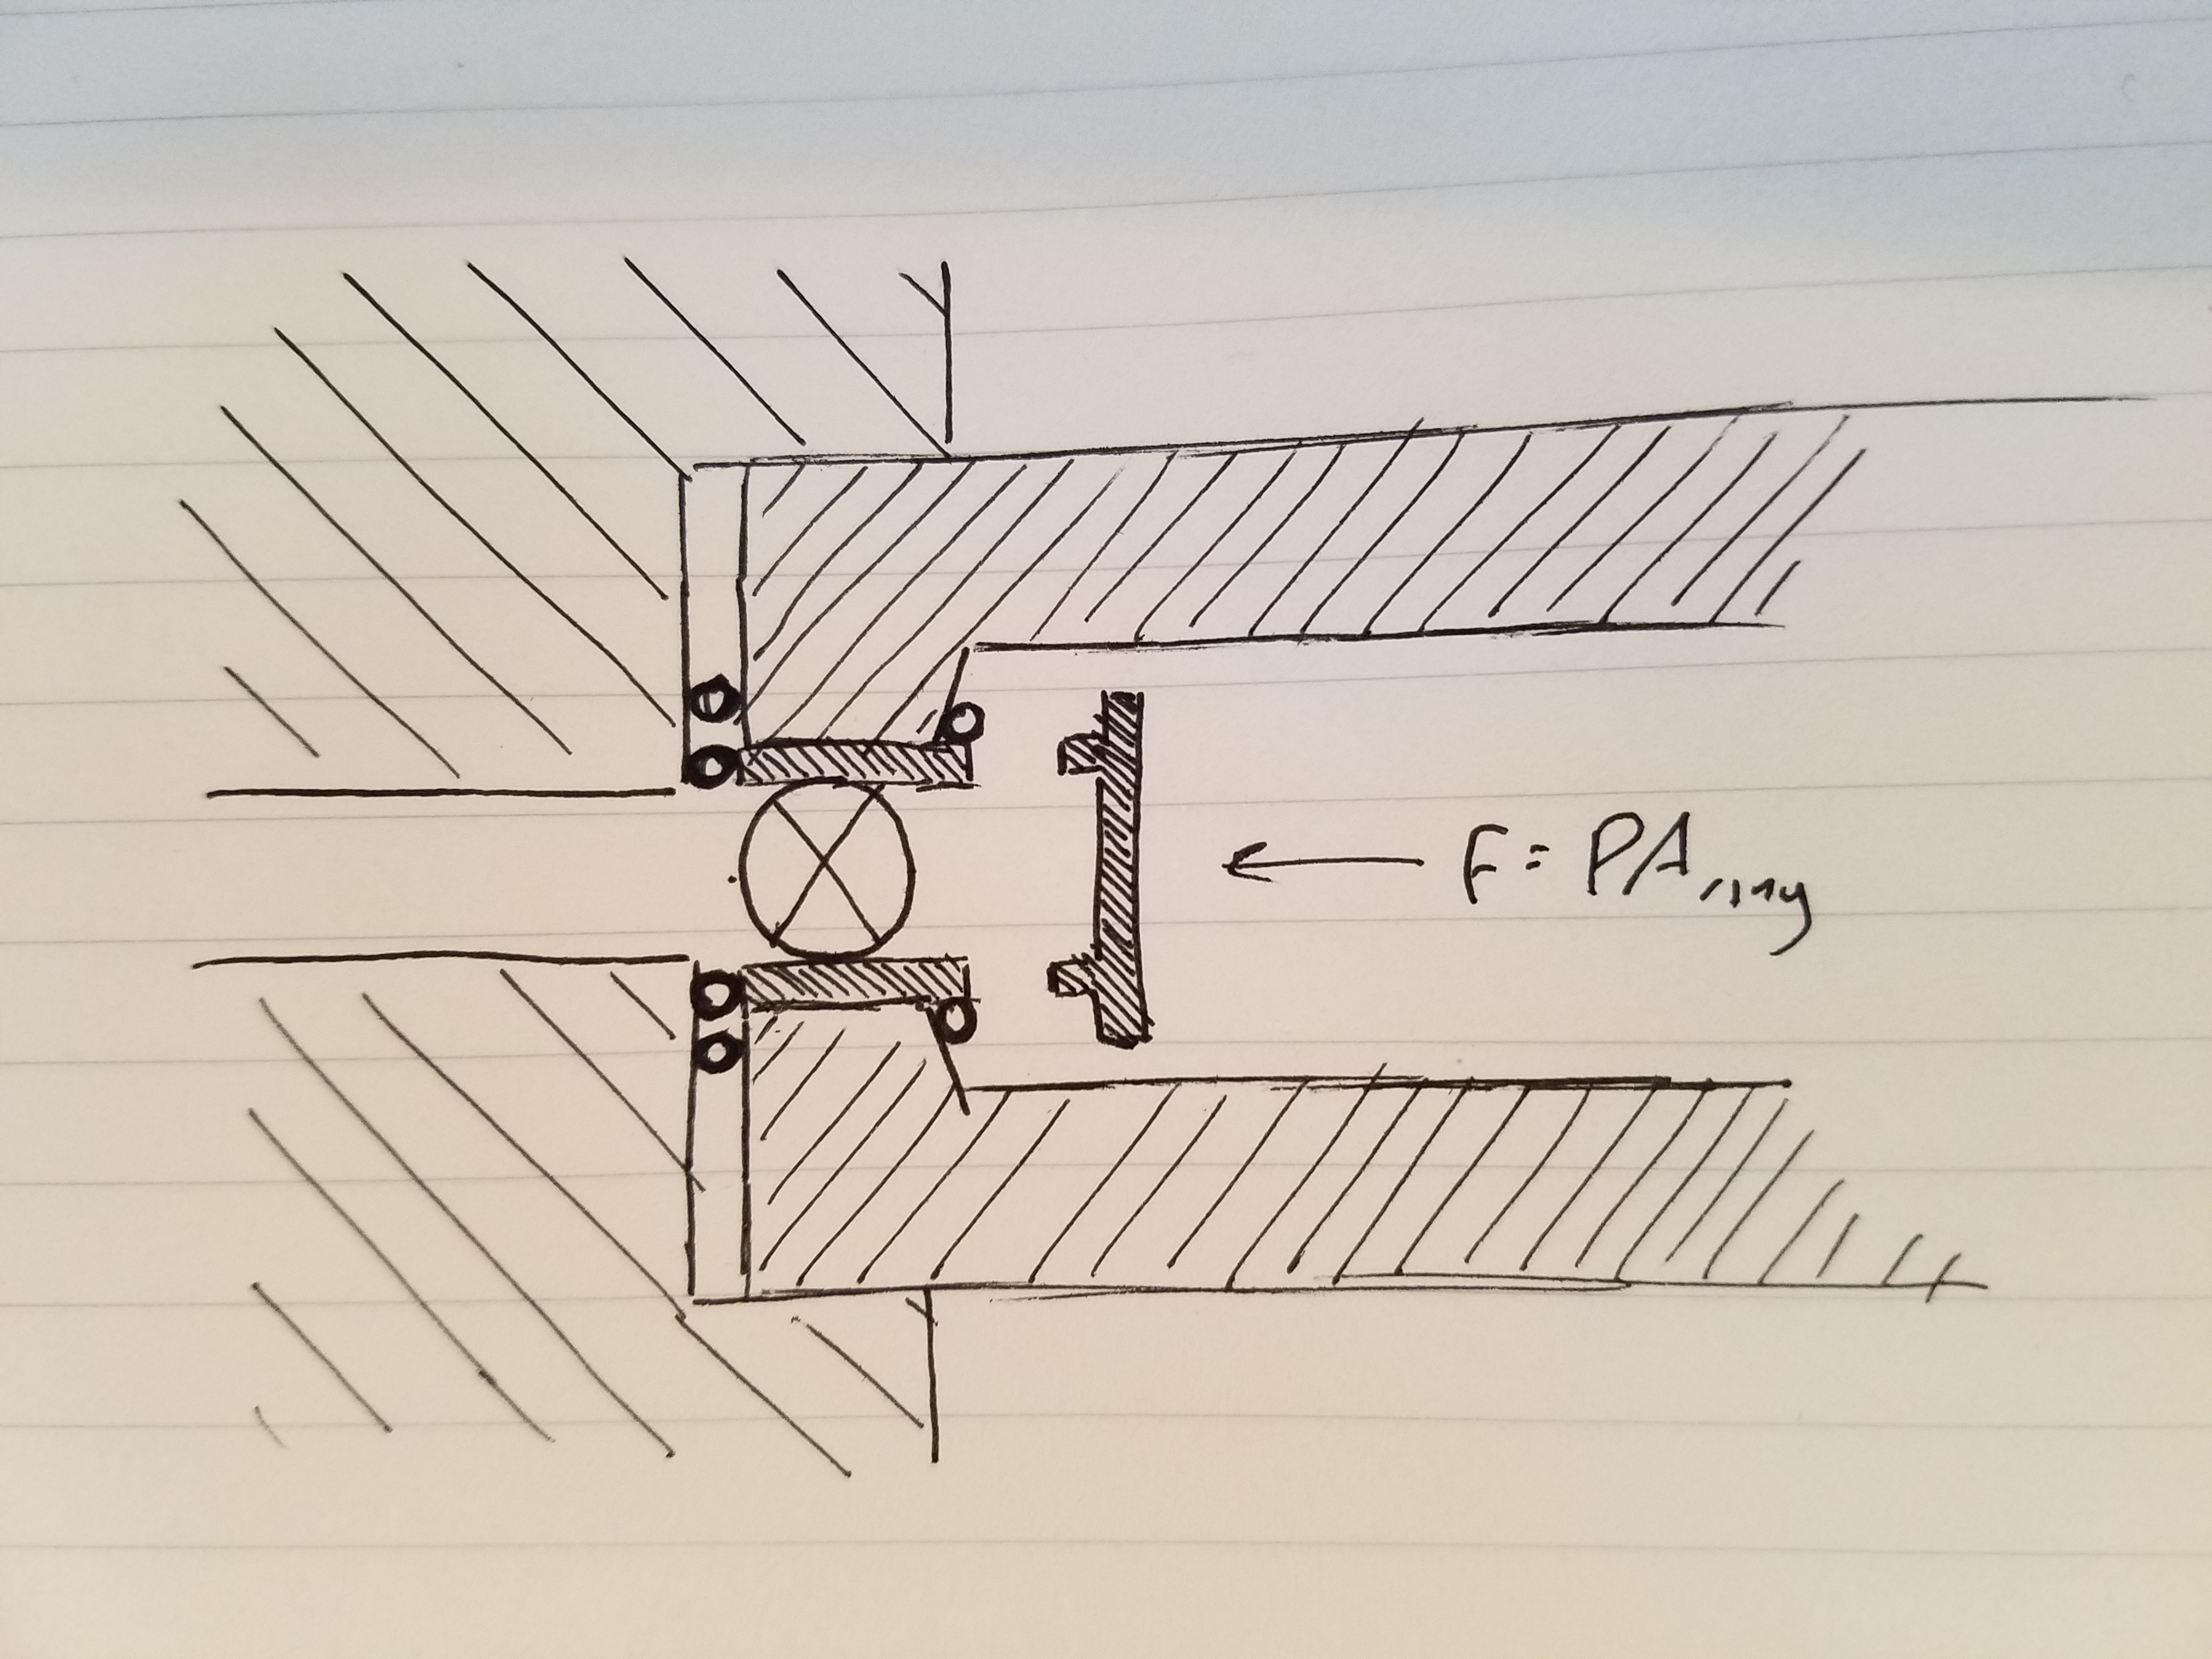 F = PA ring